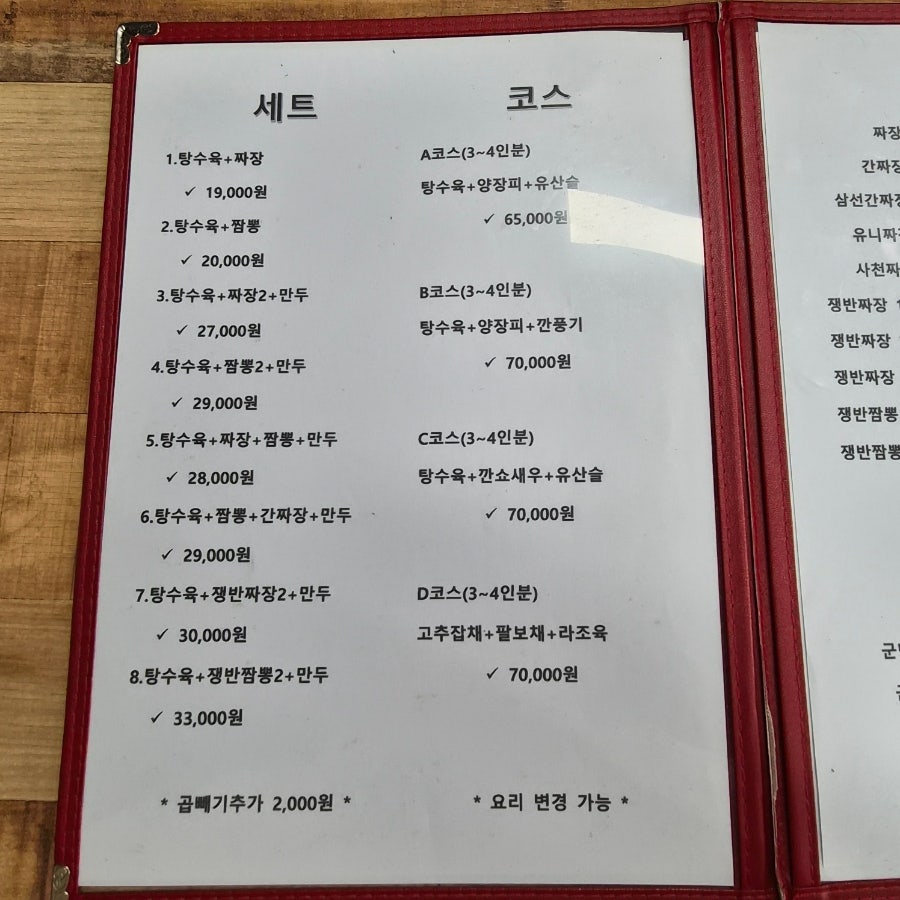 세트
1.탕수육+짜장
✓ 19,000원
2.탕수육+짬뽕
✓ 20,000원
3.탕수육+짜장2+만두
✓ 27,000원
4.탕수육+짬뽕2+만두
✓ 29,000원
5.탕수육+짜장+짬뽕+만두
✓ 28,000원
6.탕수육+짬뽕+간짜장+만두
✓ 29,000원
7.탕수육+쟁반짜장2+만두
✓ 30,000원
8.탕수육+쟁반짬뽕2+만두
✓ 33,000원
* 곱빼기추가 2,000원 *
코스
A코스(3~4인분)
탕수육+양장피+유산슬
✓ 65,000원
B코스(3~4인분)
탕수육+양장피+깐풍기
✓ 70,000원
C코스(3~4인분)
탕수육+깐쇼새우+유산슬
✓ 70,000원
D코스(3~4인분)
고추잡채+팔보채+라조육
✓ 70,000원
* 요리 변경 가능 *
짜장
간짜장
삼선간짜장
유니짜
사천짜
쟁반짜장
쟁반짜장
쟁반짜장
쟁반짬뽕
쟁반짬뽕